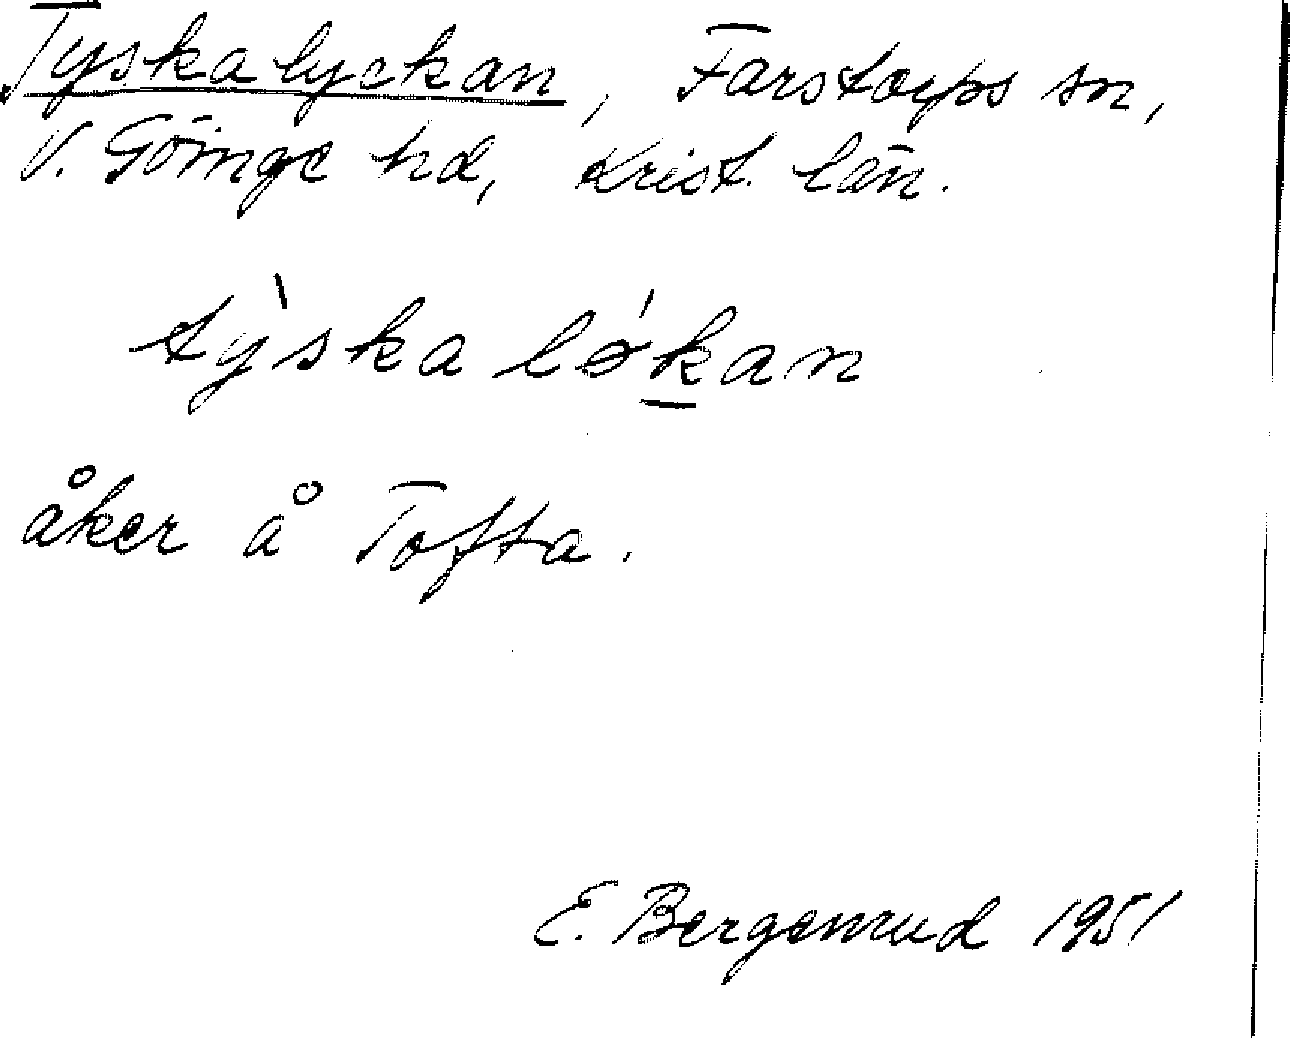 Tyskalyckan, Farstorps sn,
V. Göinge hd, Krist. län.
tỳskaløkan
åker å Tofta.
E. Bergenrud 1951